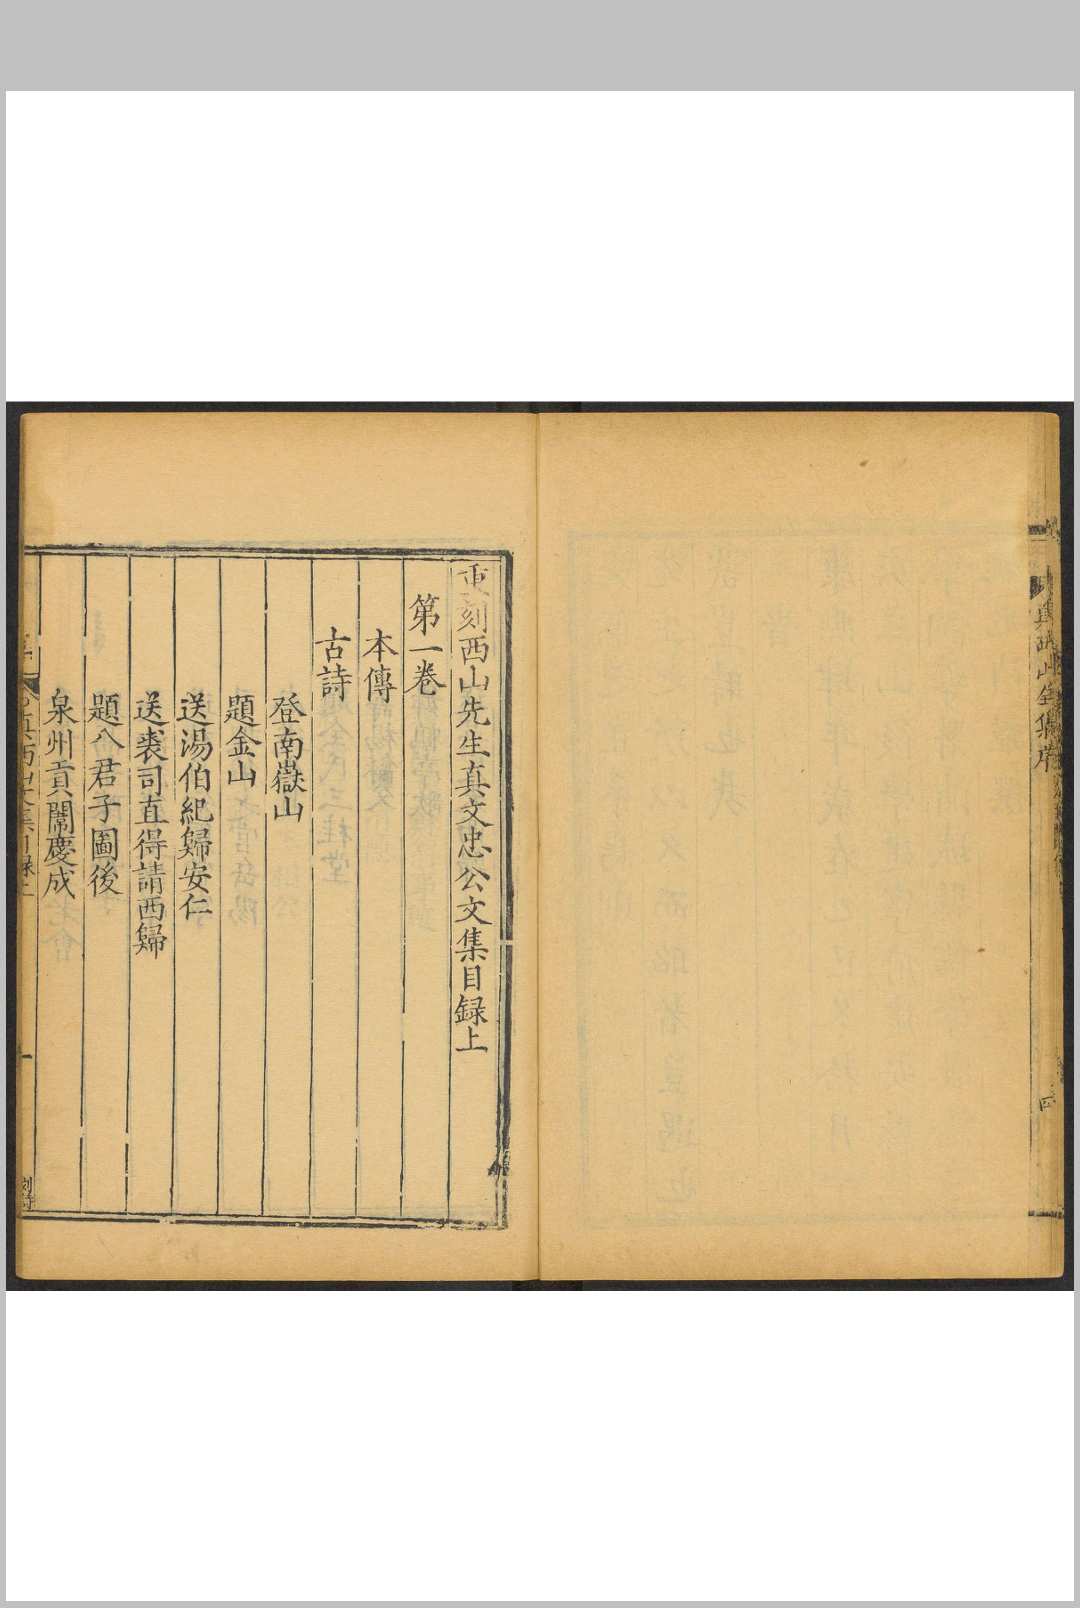 重刻西山先生真文忠公文集目録上
第一卷
本傳
古詩
登南嶽山
題金山
送湯伯紀歸安仁
送裘司直得請西歸
題八君子圖後
泉州貢闈慶成
一